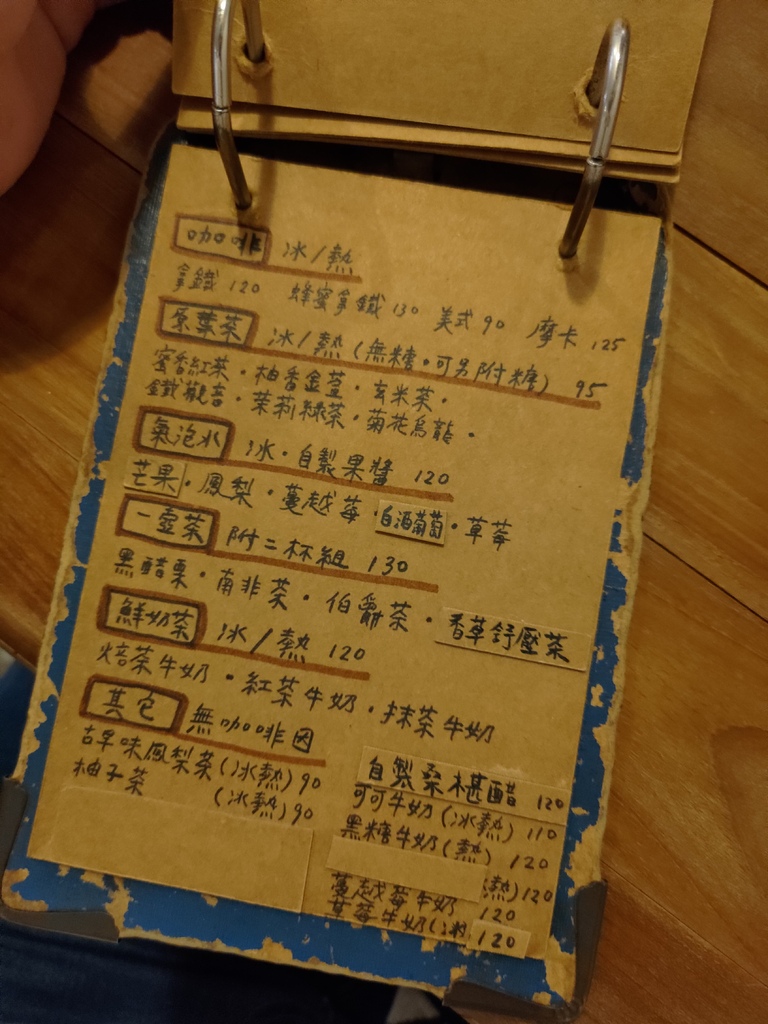 咖啡 冰/熱
拿鐵 120 蜂蜜拿鐵 130 美式 90 摩卡 125
原葉茶 冰/熱(無糖。可另附糖) 95
蜜香紅茶・柚香金萱・玄米茶・
鐵觀音・茉莉綠茶・菊花烏龍・
氣泡水 冰・自製果醬 120
芒果・鳳梨・蔓越莓・白酒葡萄・草莓
一壺茶 附二杯組 130
黑醋栗・南非茶・伯爵茶・香草舒壓茶
鮮奶茶 冰/熱 120
焙茶牛奶・紅茶牛奶・抹茶牛奶
其它 無咖啡因
古早味鳳梨茶(冰熱) 90
柚子茶 (冰熱) 90
自製桑椹醋 120
可可牛奶(冰熱) 110
黑糖牛奶(熱) 120
熱) 120
蔓越莓牛奶 120
草莓牛奶(冰 120